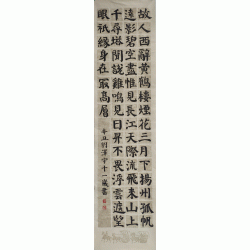 故人西辭黃鶴樓煙花三月下揚州孤帆
遠影碧空盡惟見長江天際流飛來山上
千尋塔聞說雞鳴見日昇不畏浮雲遮望
眼祇緣身在最高層
辛丑劉澤宇十一歲書